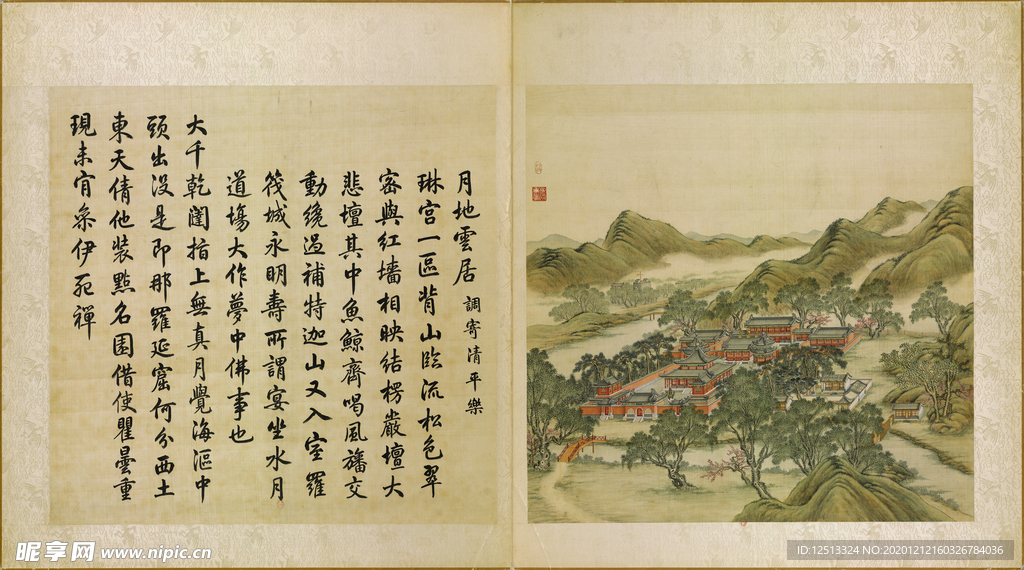 月地雲居 調寄清平樂
琳宮一區背山臨流松色翠
密與紅墻相映結楞嚴壇大
悲壇其中魚鯨齊喝風旛交
動纔過補特迦山又入室羅
筏城永明壽所謂宴坐水月
道塲大作夢中佛事也
大千乾闥指上無真月覺海漚中
頭出沒是即那羅延窟何分西土
東天倩他裝點名園借使瞿曇重
現未肎叅伊死禪
昵享网 www.nipic.cn
ID:12513324 NO:20201212160326784036